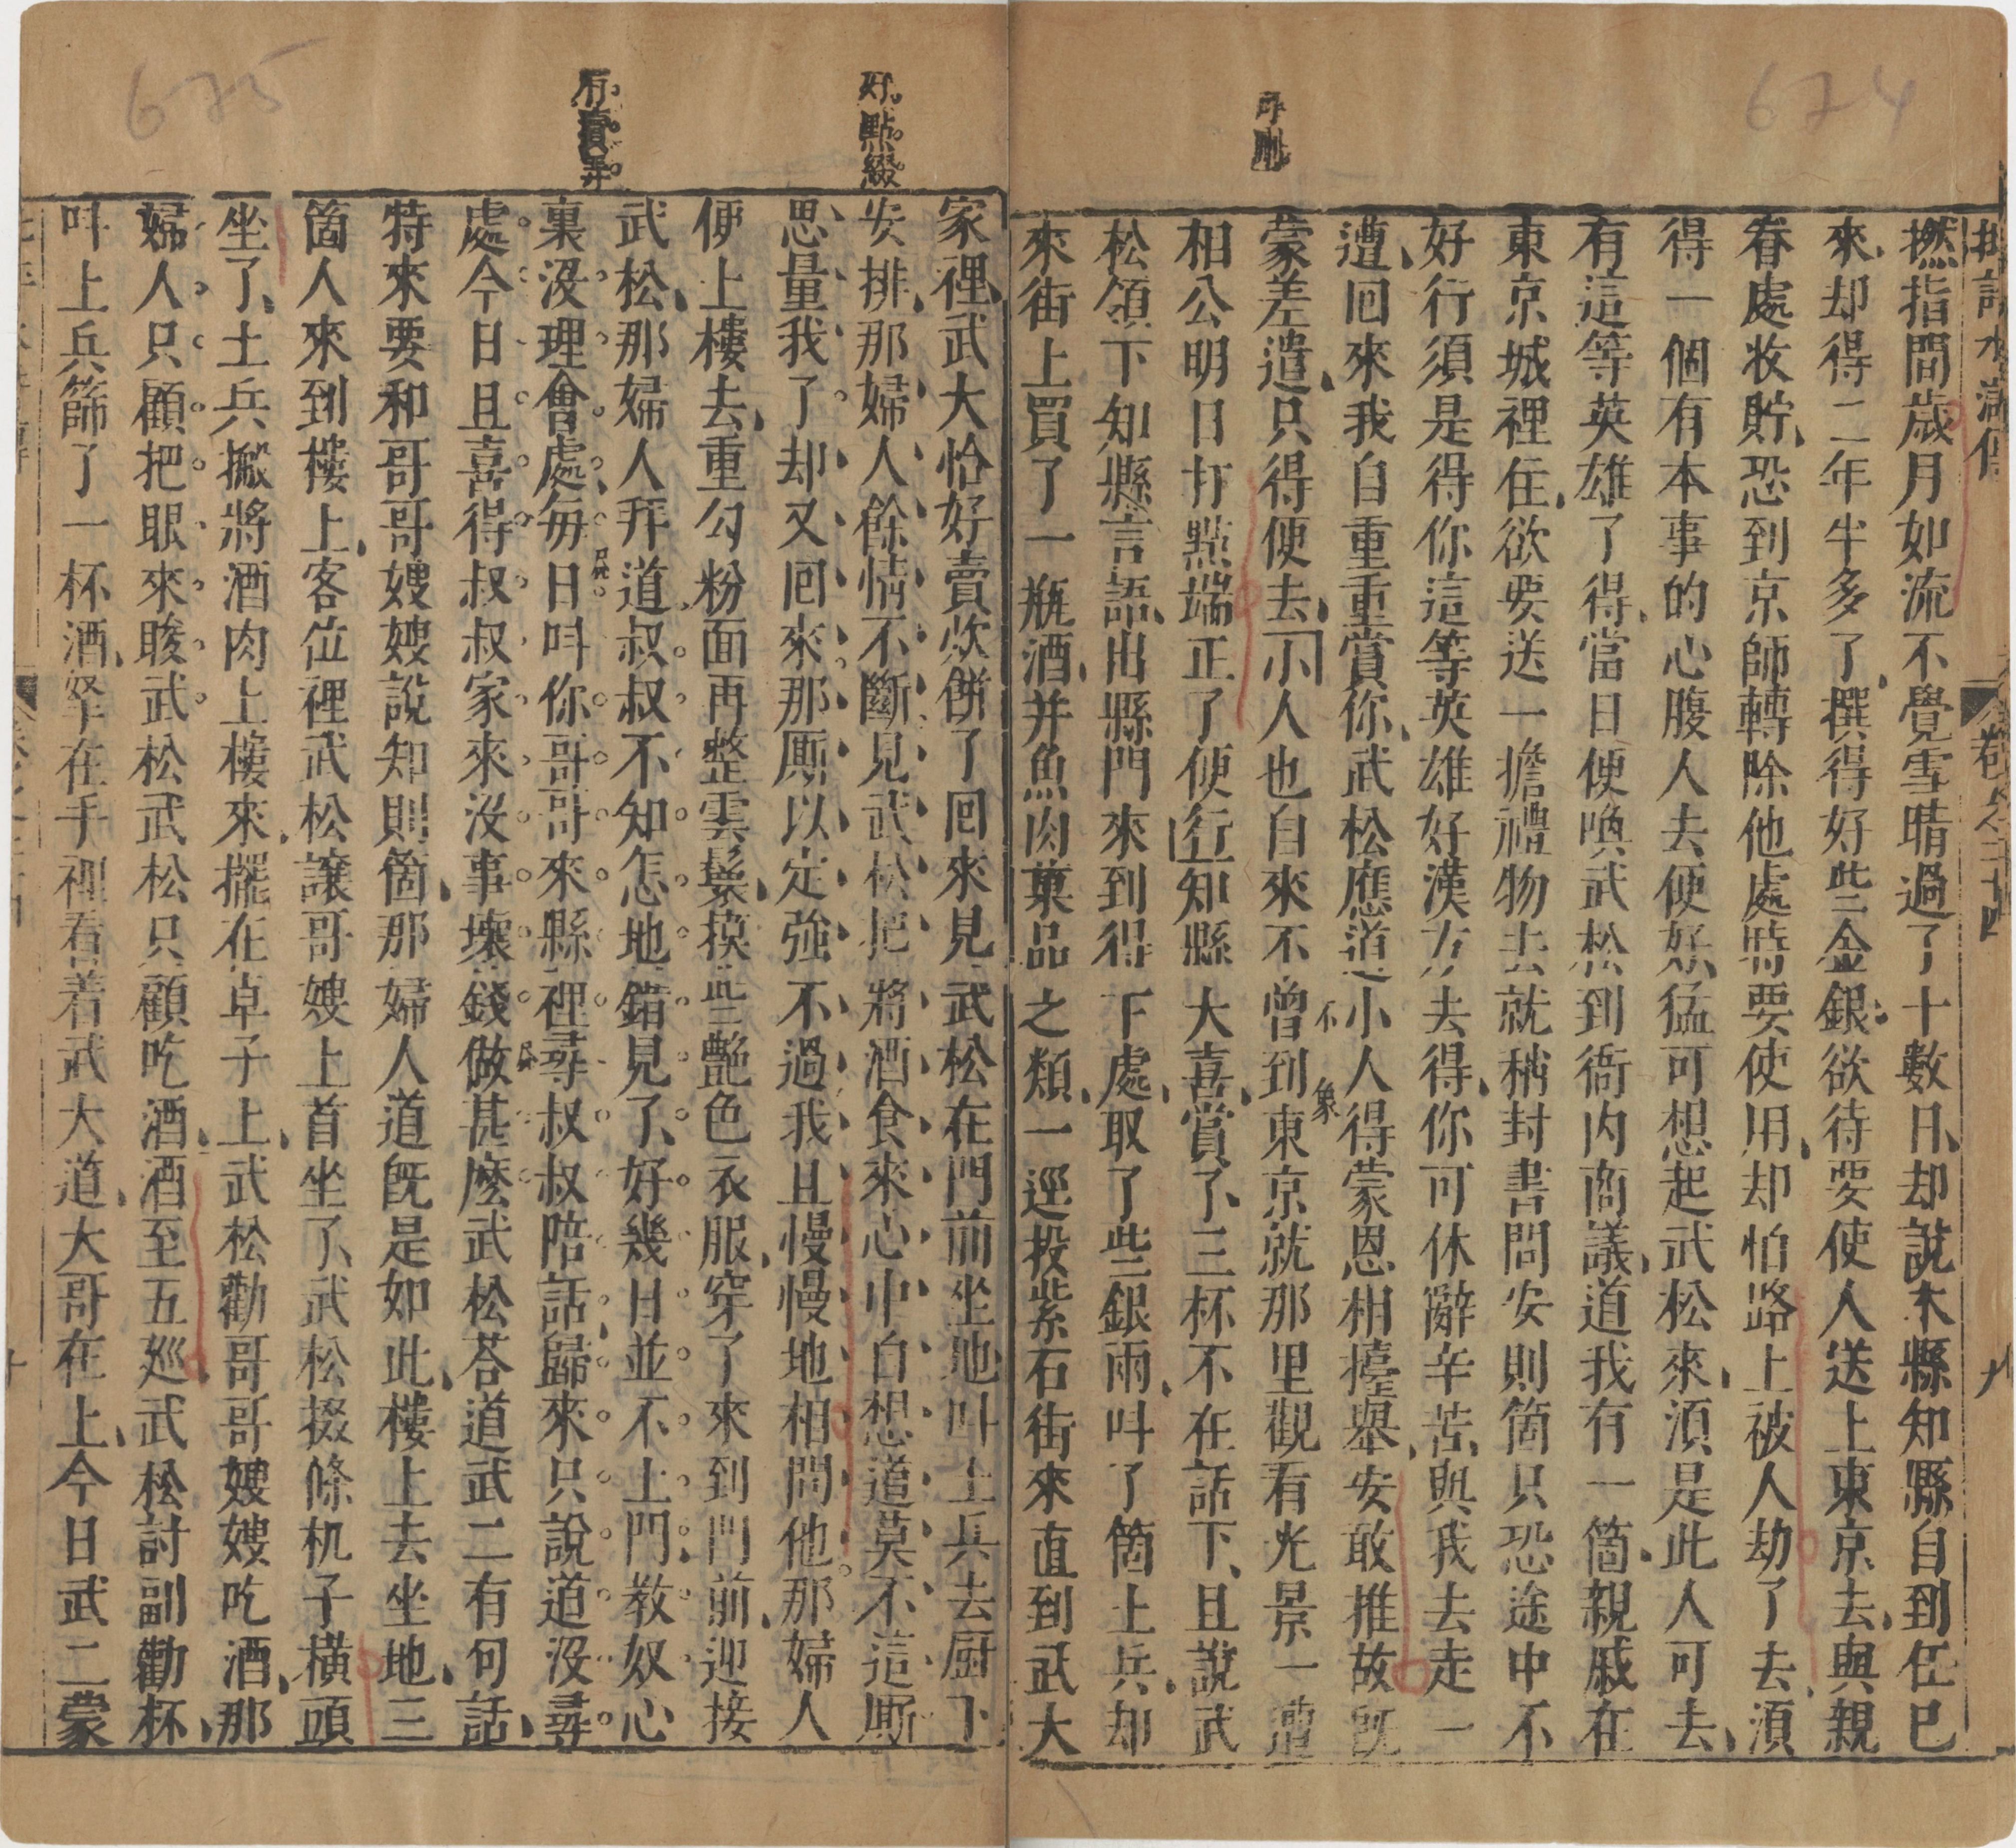 674
撚指間歲月如流不覺雪晴過了十數日却說本縣知縣自到任已
來却得二年半多了撰得好些金銀欲待要使人送上東京去與親
眷處收貯恐到京師轉除他處時要使用却怕路上被人劫了去須
得一個有本事的心腹人去便好猛可想起武松來須是此人可去
有這等英雄了得當日便喚武松到衙內商議道我有一箇親戚在
東京城裡住欲要送一擔禮物去就稍封書問安則箇只恐途中不
好行須是得你這等英雄好漢方去得你可休辭辛苦與我去走一
遭回來我自重重賞你武松應道小人得蒙恩相擡舉安敢推故既
蒙差遣只得便去小人也自來不曾到東京就那里觀看光景一遭
相公明日打點端正了便行知縣大喜賞了三杯不在話下且說武
松領下知縣言語出縣門來到得下處取了些銀兩呌了箇土兵却
來街上買了一瓶酒并魚肉菓品之類一逕投紫石街來直到武大
不象
九
675
好點綴
家裡武大恰好賣炊餅了回來見武松在門前坐地呌土兵去厨下
安排那婦人餘情不斷見武松把將酒食來心中自想道莫不這厮
思量我了却又回來那厮以定強不過我且慢慢地相問他那婦人
便上樓去重勻粉面再整雲鬟換些艷色衣服穿了來到門前迎接
武松那婦人拜道叔叔不知怎地錯見了好幾日並不上門教奴心
裏沒理會處每日呌你哥哥來縣裡尋叔叔陪話歸來只說道沒尋
處今日且喜得叔叔家來沒事壞錢做甚麽武松荅道武二有句話
特來要和哥哥嫂嫂說知則箇那婦人道既是如此樓上去坐地三
箇人來到樓上客位裡武松讓哥嫂上首坐了武松掇條杌子橫頭
坐了土兵搬將酒肉上樓來擺在卓子上武松勸哥哥嫂嫂吃酒那
婦人只顧把眼來睃武松武松只顧吃酒酒至五巡武松討副勸杯
呌土兵篩了一杯酒拏在手裡看着武大道大哥在上今日武二蒙
十